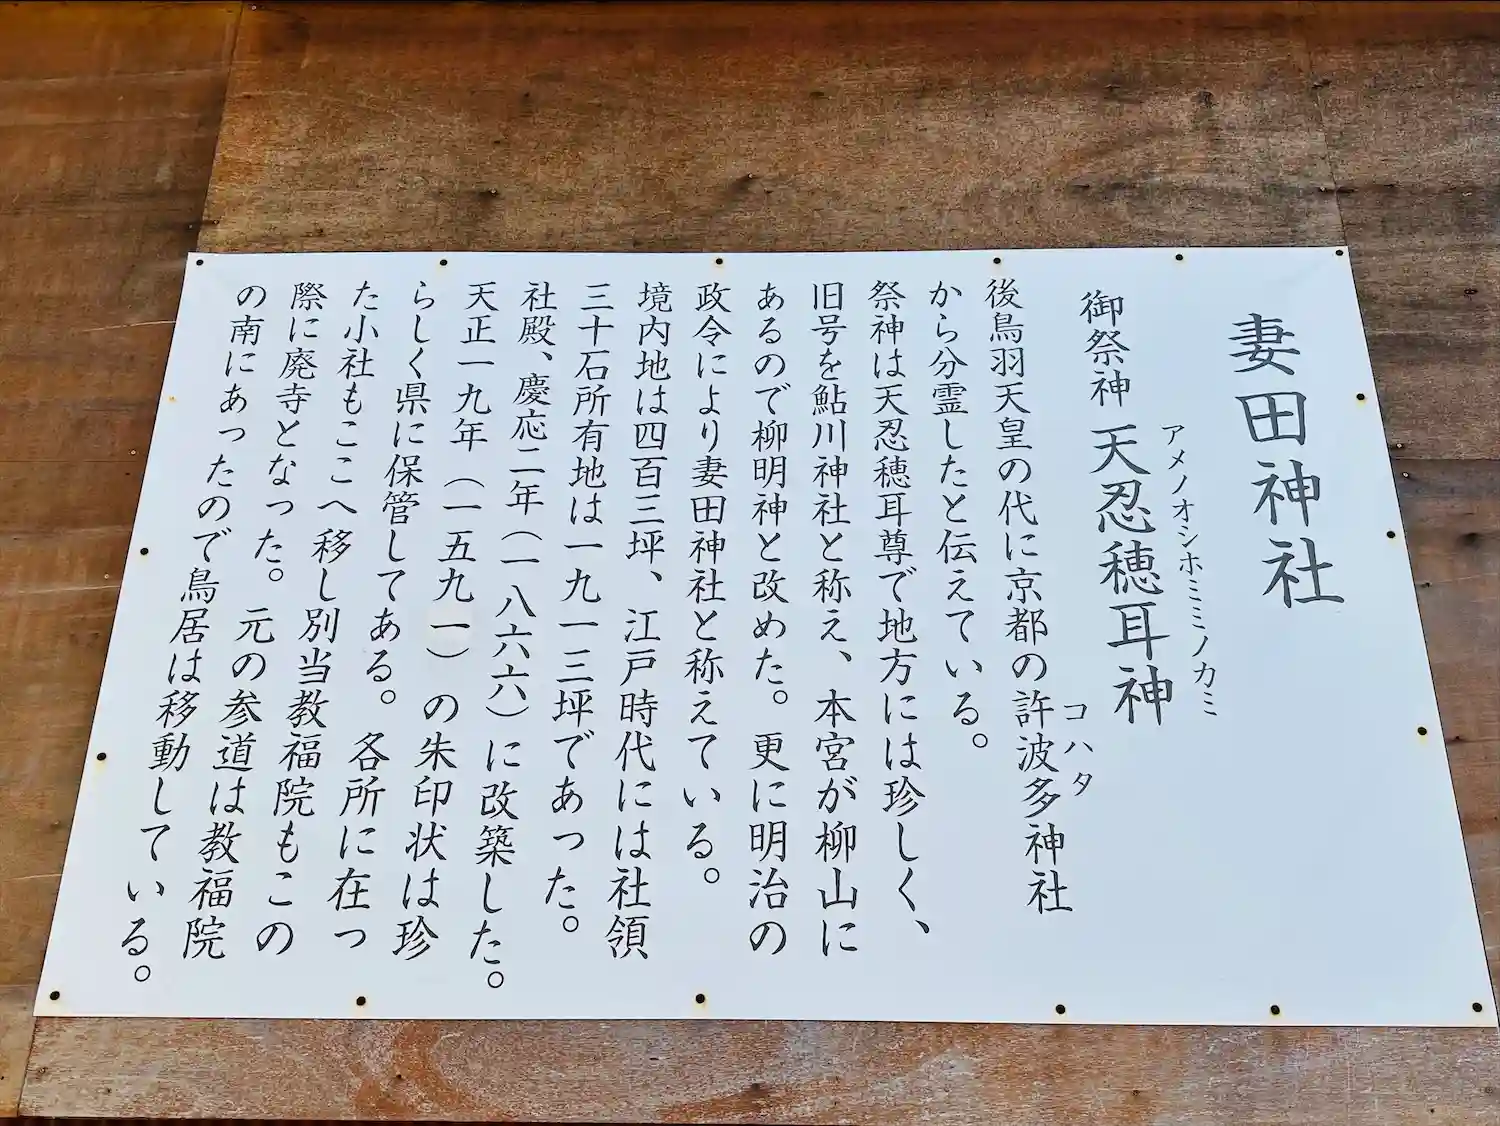 妻田神社
アメノオシホミミノカミ
御祭神 天忍穂耳神
コハタ
後鳥羽天皇の代に京都の許波多神社
から分霊したと伝えている。
祭神は天忍穂耳尊で地方には珍しく、
旧号を鮎川神社と称え、本宮が柳山に
あるので柳明神と改めた。更に明治の
政令により妻田神社と称えている。
境内地は四百三坪、江戸時代には社領
三十石所有地は一九一三坪であった。
社殿、慶応二年(一八六六)に改築した。
天正一九年(一五九一)の朱印状は珍
らしく県に保管してある。各所に在っ
た小社もここへ移し別当教福院もこの
際に廃寺となった。元の参道は教福院
の南にあったので鳥居は移動している。